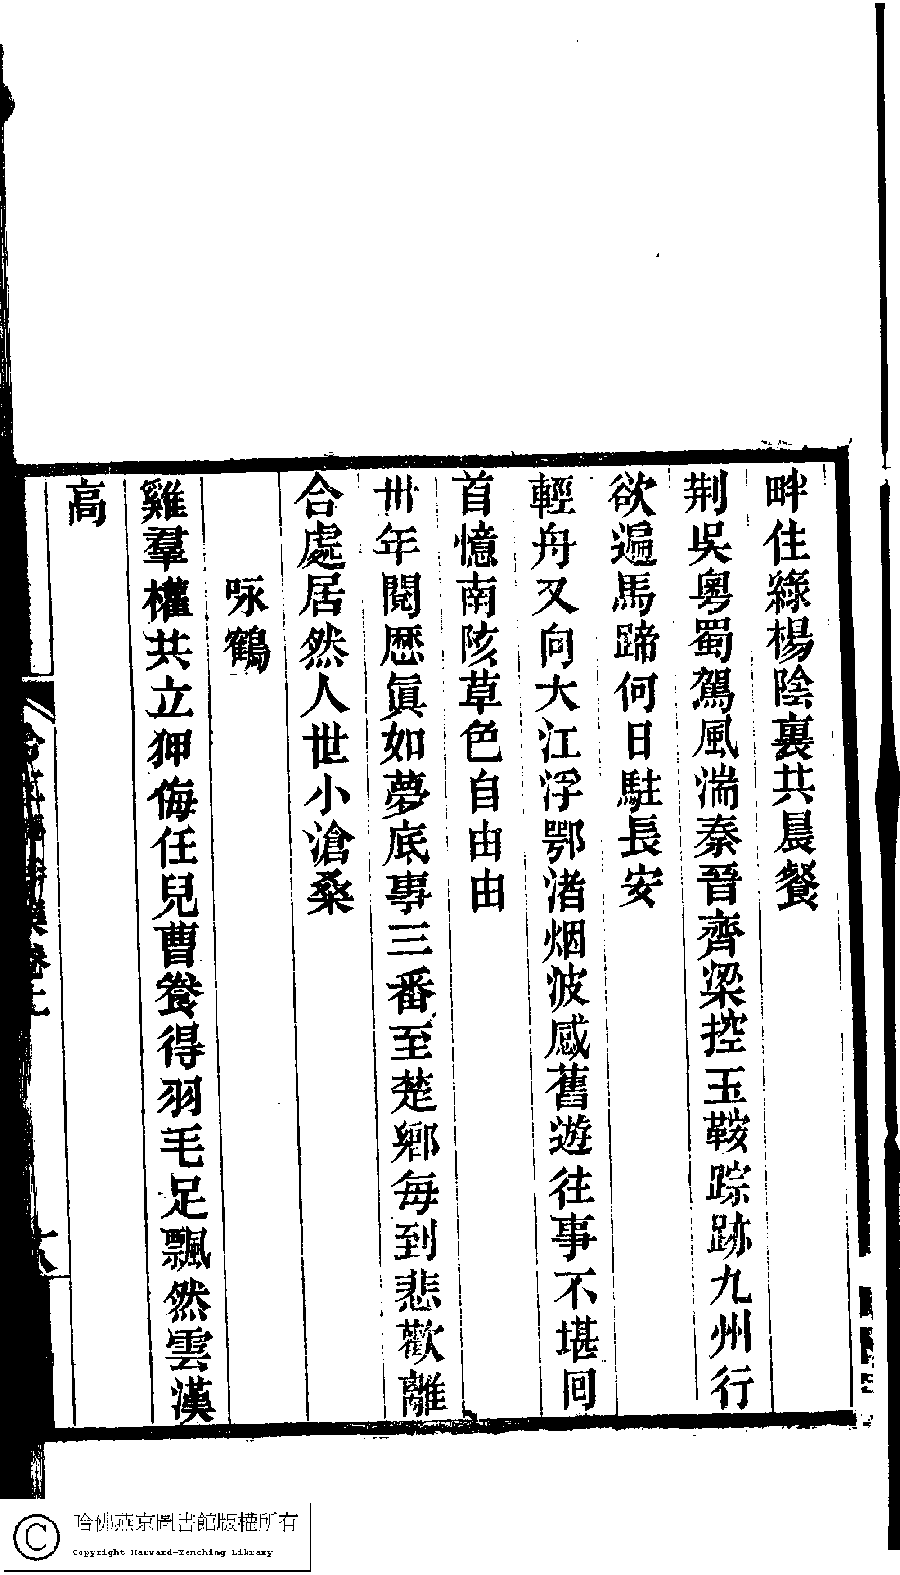 畔住綠楊陰裏共晨餐
荆吳粵蜀駕風湍秦晉齊梁控玉鞍踪跡九州行
欲遍馬蹄何日駐長安
輕舟又向大江浮鄂渚烟波感舊遊往事不堪回
首憶南陔草色自由由
卅年閱歷眞如夢底事三番至楚鄉每到悲歡離
合處居然人世小滄桑
咏鶴
雞羣權共立狎侮任兒曹養得羽毛足飄然雲漢
高
哈佛燕京圖書館版權所有
Copyright Harvard-Yenching Library